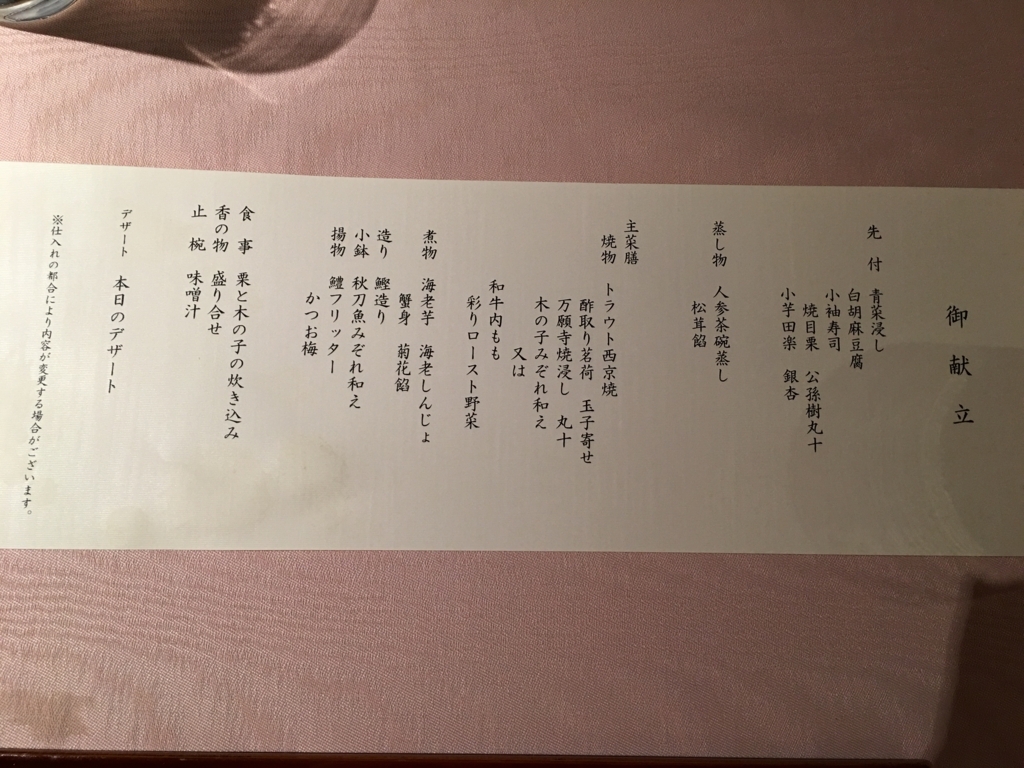 御献立
先付 青菜浸し
白胡麻豆腐
小袖寿司
焼目栗 公孫樹丸十
小芋田楽 銀杏
蒸し物 人参茶碗蒸し
松茸餡
主菜膳
焼物 トラウト西京焼
酢取り茗荷 玉子寄せ
万願寺焼浸し 丸十
木の子みぞれ和え
又は
和牛内もも
彩りロースト野菜
煮物 海老芋 海老しんじょ
蟹身 菊花餡
造り 鰹造り
小鉢 秋刀魚みぞれ和え
揚物 鱧フリッター
かつお梅
食事 栗と木の子の炊き込み
香の物 盛り合せ
止椀 味噌汁
デザート 本日のデザート
※仕入れの都合により内容が変更する場合がございます。